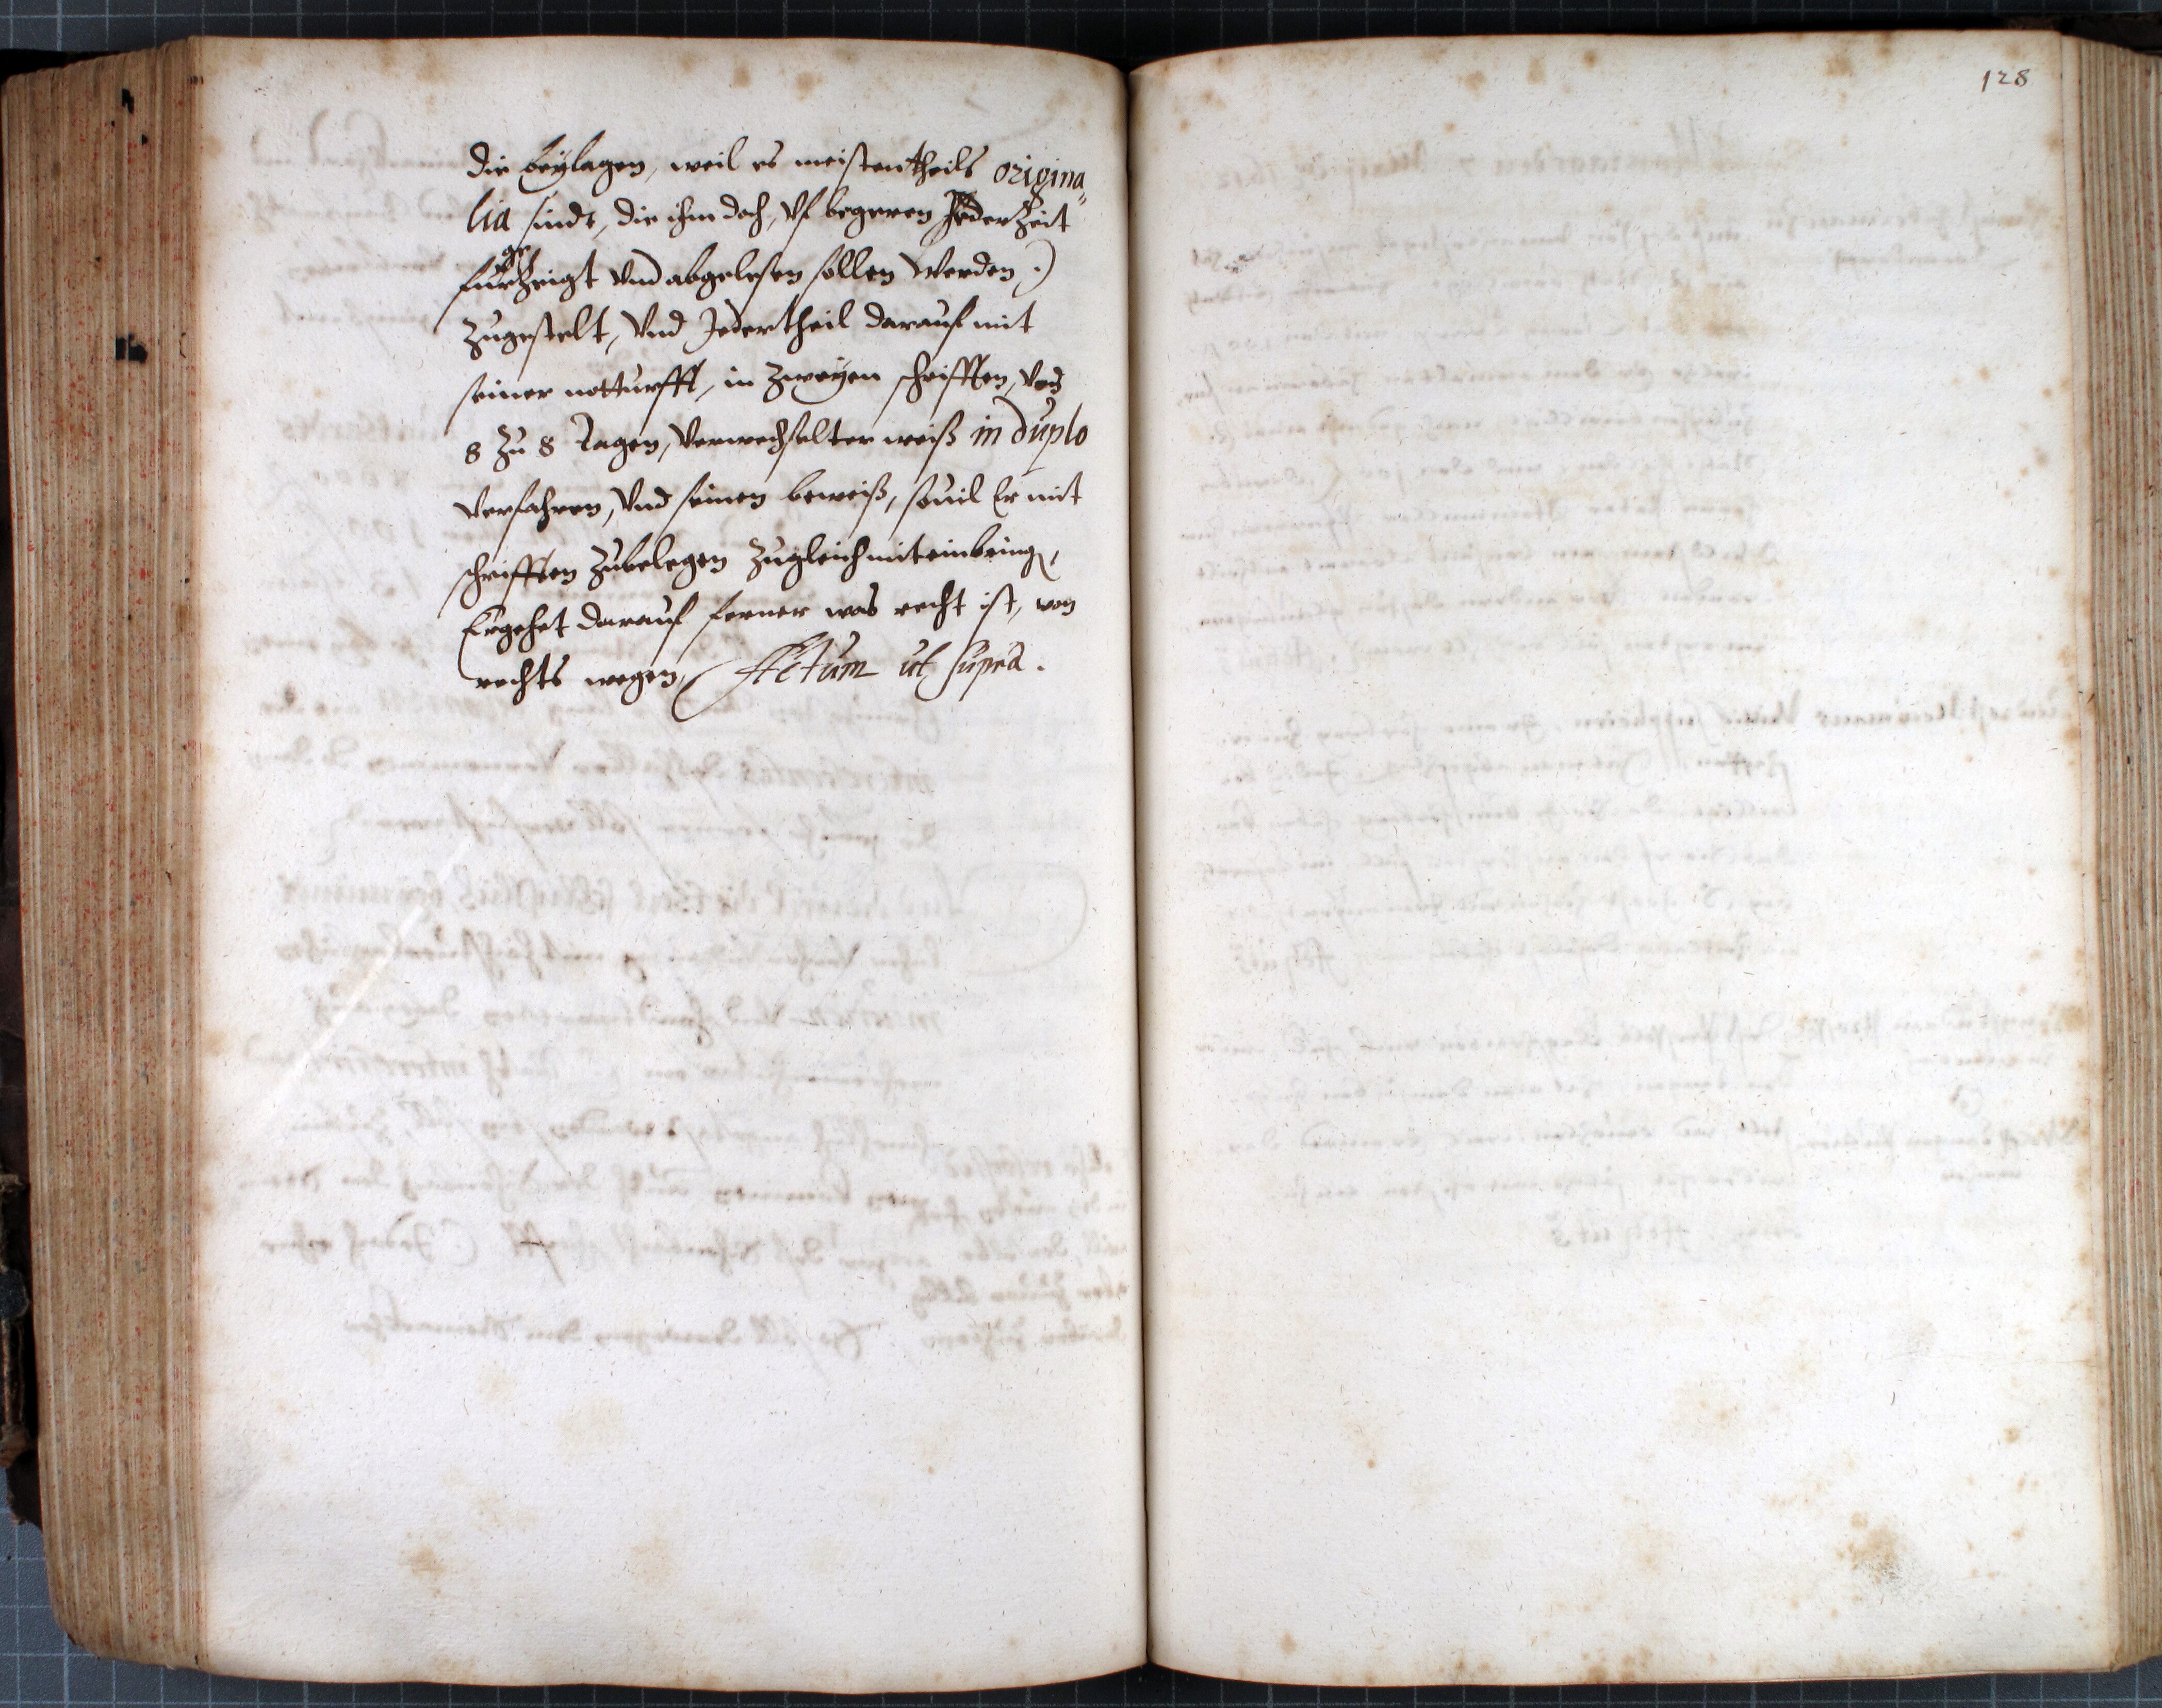 die beylagen, weil es meistentheils origina„
lia sindt, die ihm doch, vf begeren Jederzeit
furgezeigt vnd abgelesen sollen werden.)
zugestelt, vnd Jedertheil darauf mit
seiner notturfft, in zweyen schrifften, von
8 zu 8 Tagen, verwechselter weiß in duplo
verfahren, vnd seinen beweiß, souil Er mit
schrifften zubelegen zugleich mit einbring,
Ergehet darauf ferner was recht ist, von
rechts wegen, Actum ut supra.
128